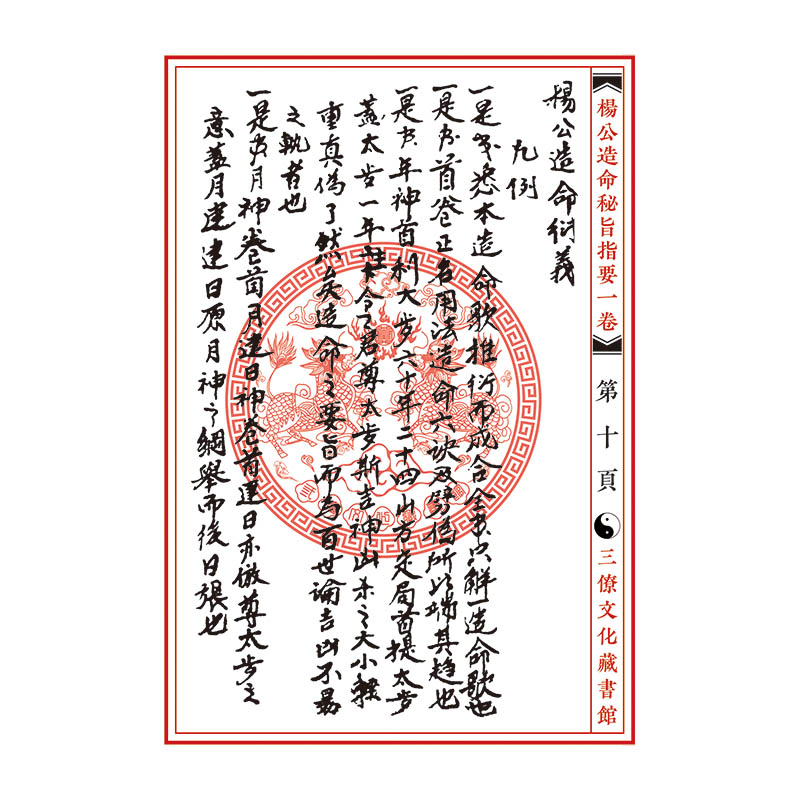 楊公造命秘旨指要一卷
第十頁
三僚文化藏書館
楊公造命衍義
凡例
一是書悉本造命歌推衍而成合全書只解一造命歌也
一是書首卷正名用法造命六訣及劈偽所以端其趋也
一是書年神首列太步六十年二十四山方定局首提太步
蓋太步一年之令君尊太步斯吉神凶杀之大小輕
重真偽了然矣造命之要旨而為百世論吉凶不易
之軌者也
一是書月神卷首月建日神卷首建日亦倣尊太步之
意蓋月建建日原月神之綱舉而後日張也